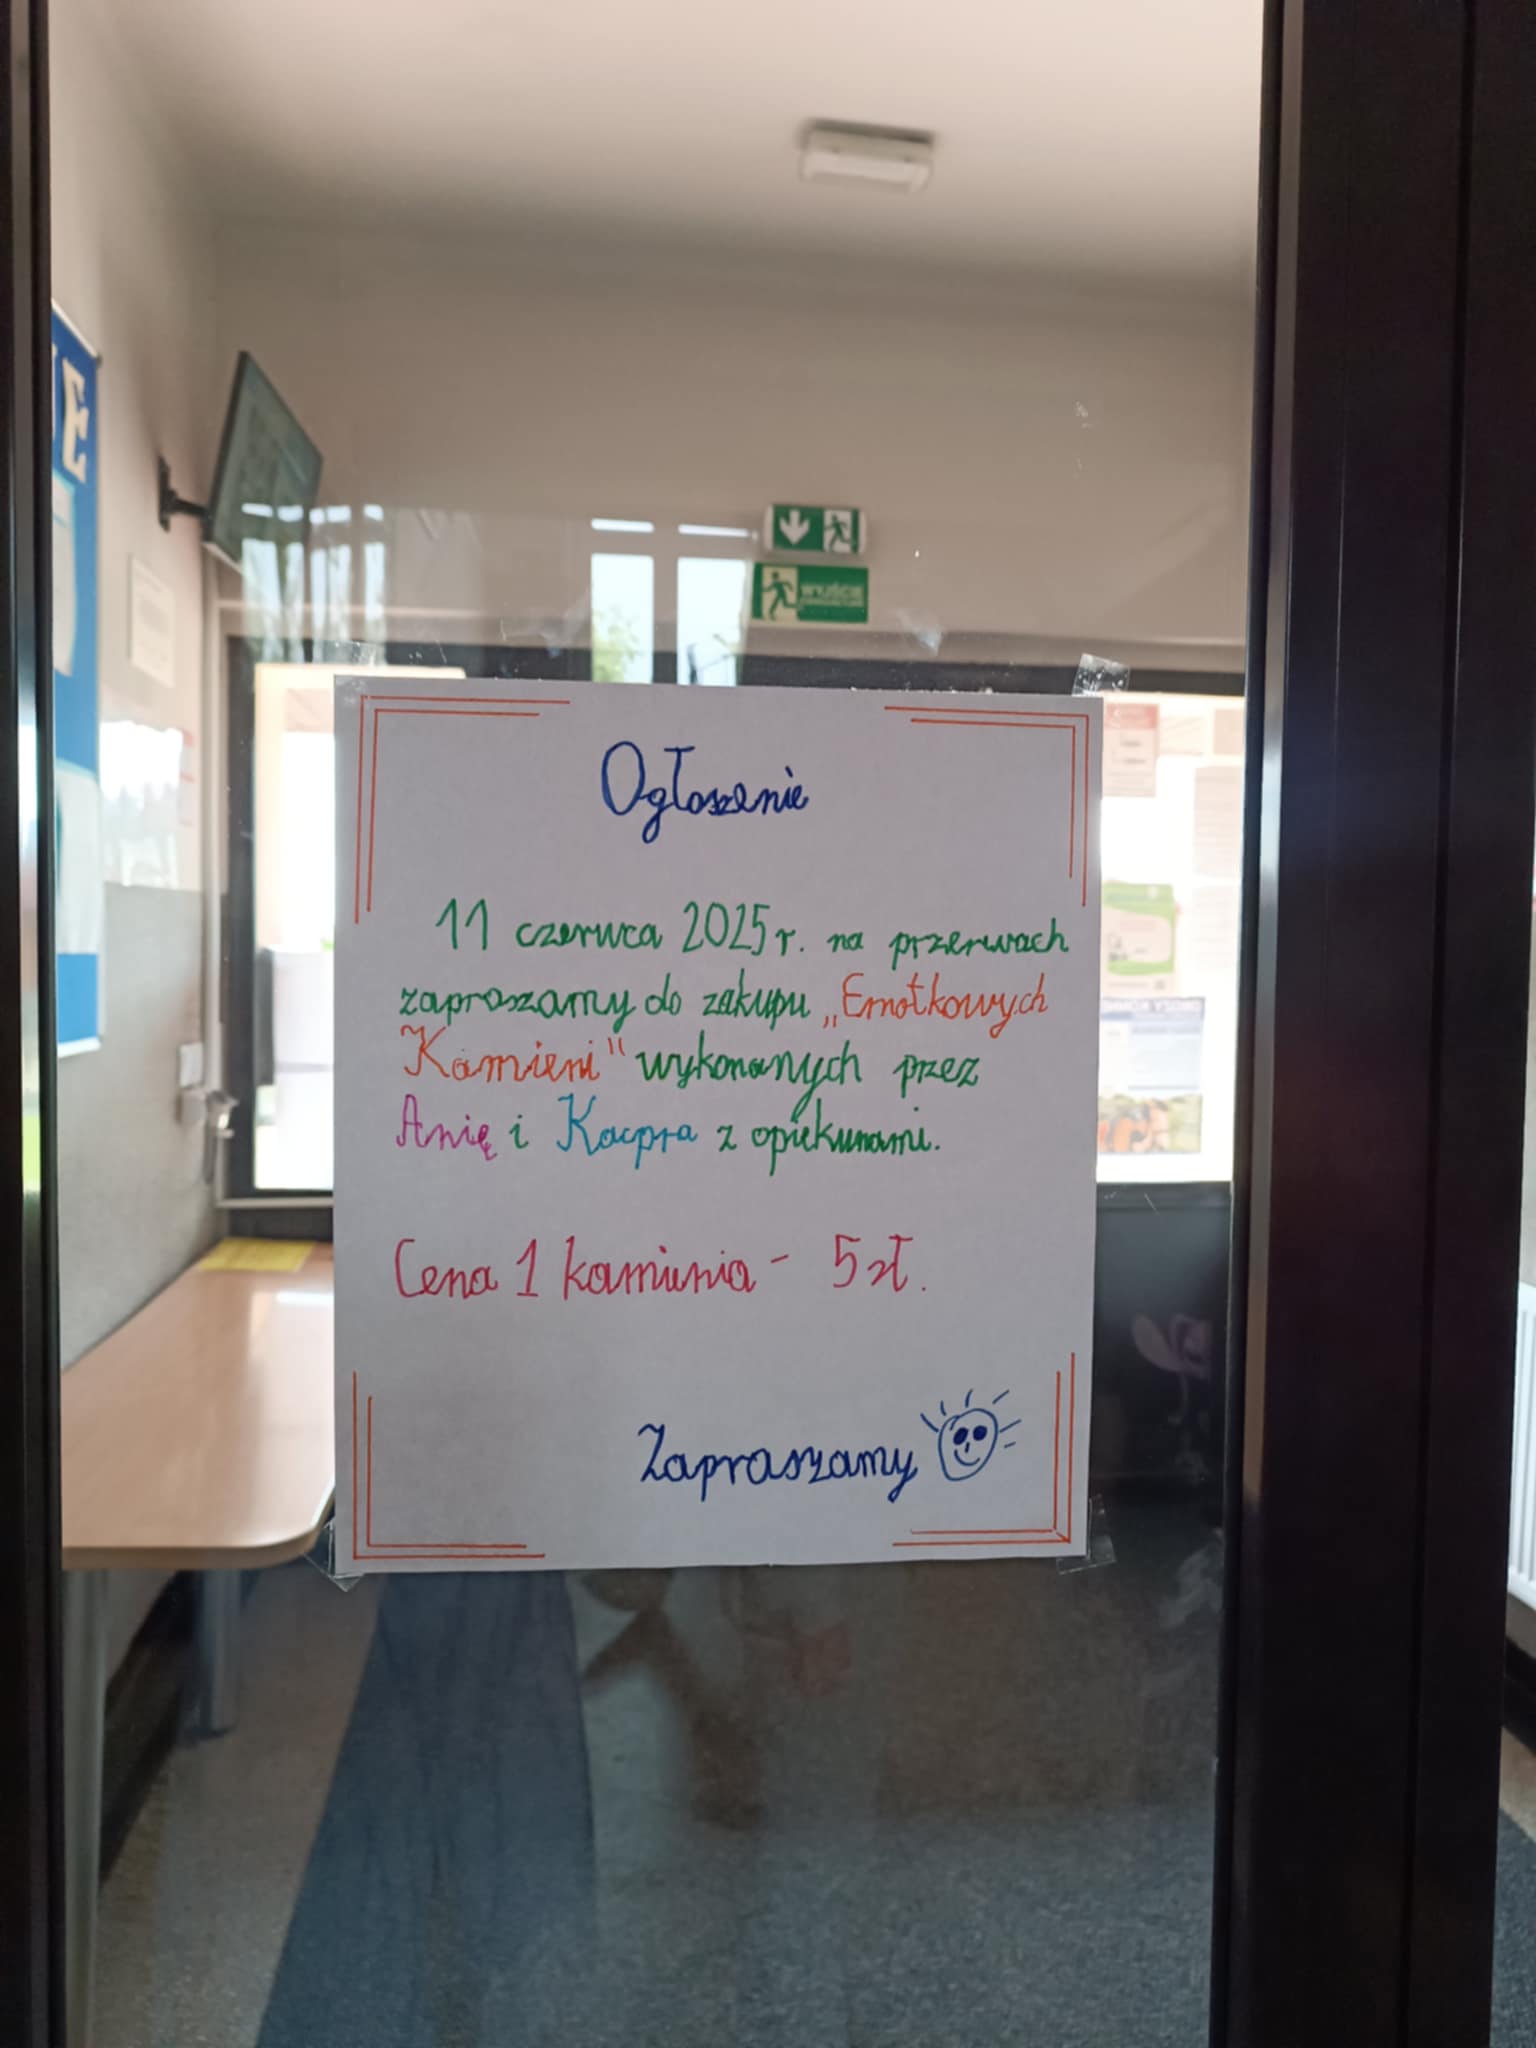 Ogłoszenie
11 czerwca 2025r. na przerwach
zapraszamy do zakupu „Emotkowych
Kamieni" wykonanych przez
Anię i Kacpra z opiekunami.
Cena 1 kamienia - 5 zł.
Zapraszamy
E
wyjście